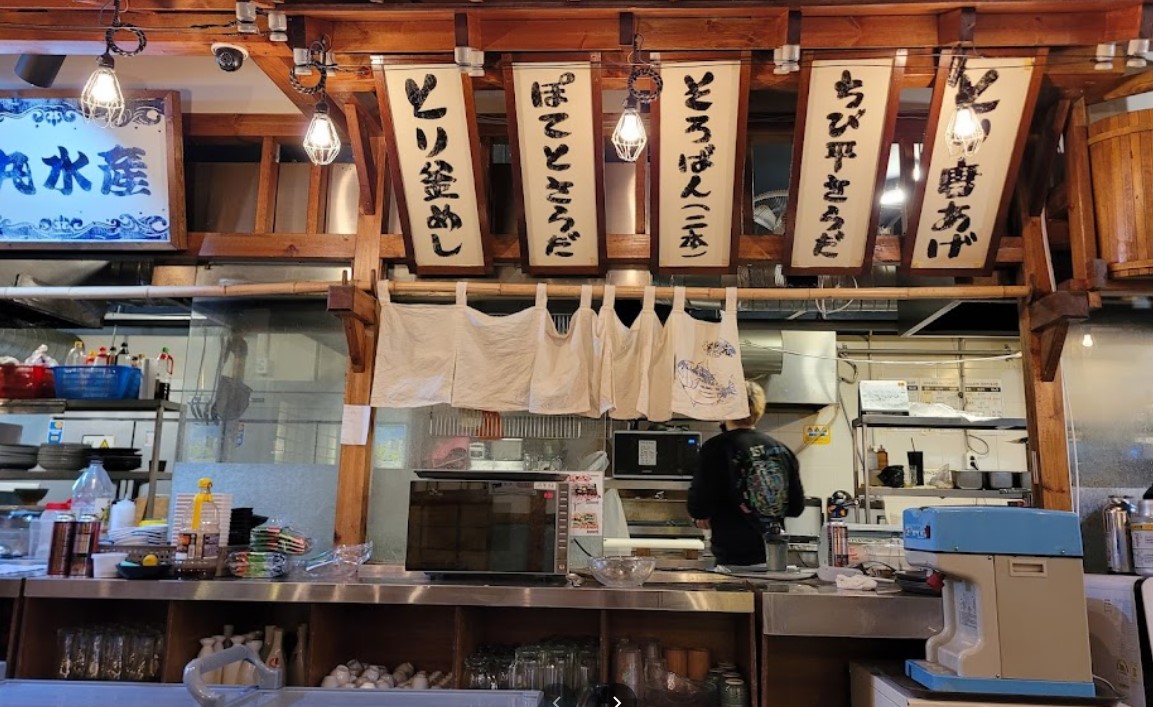 丸水産
とり釜めし
ぽてとさらだ
そろばん(二本)
ちび平さらだ
とり唐あげ